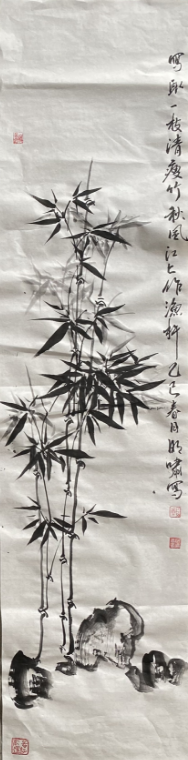 写取一枝清瘦竹秋风江上作渔竿己巳春月明啸写